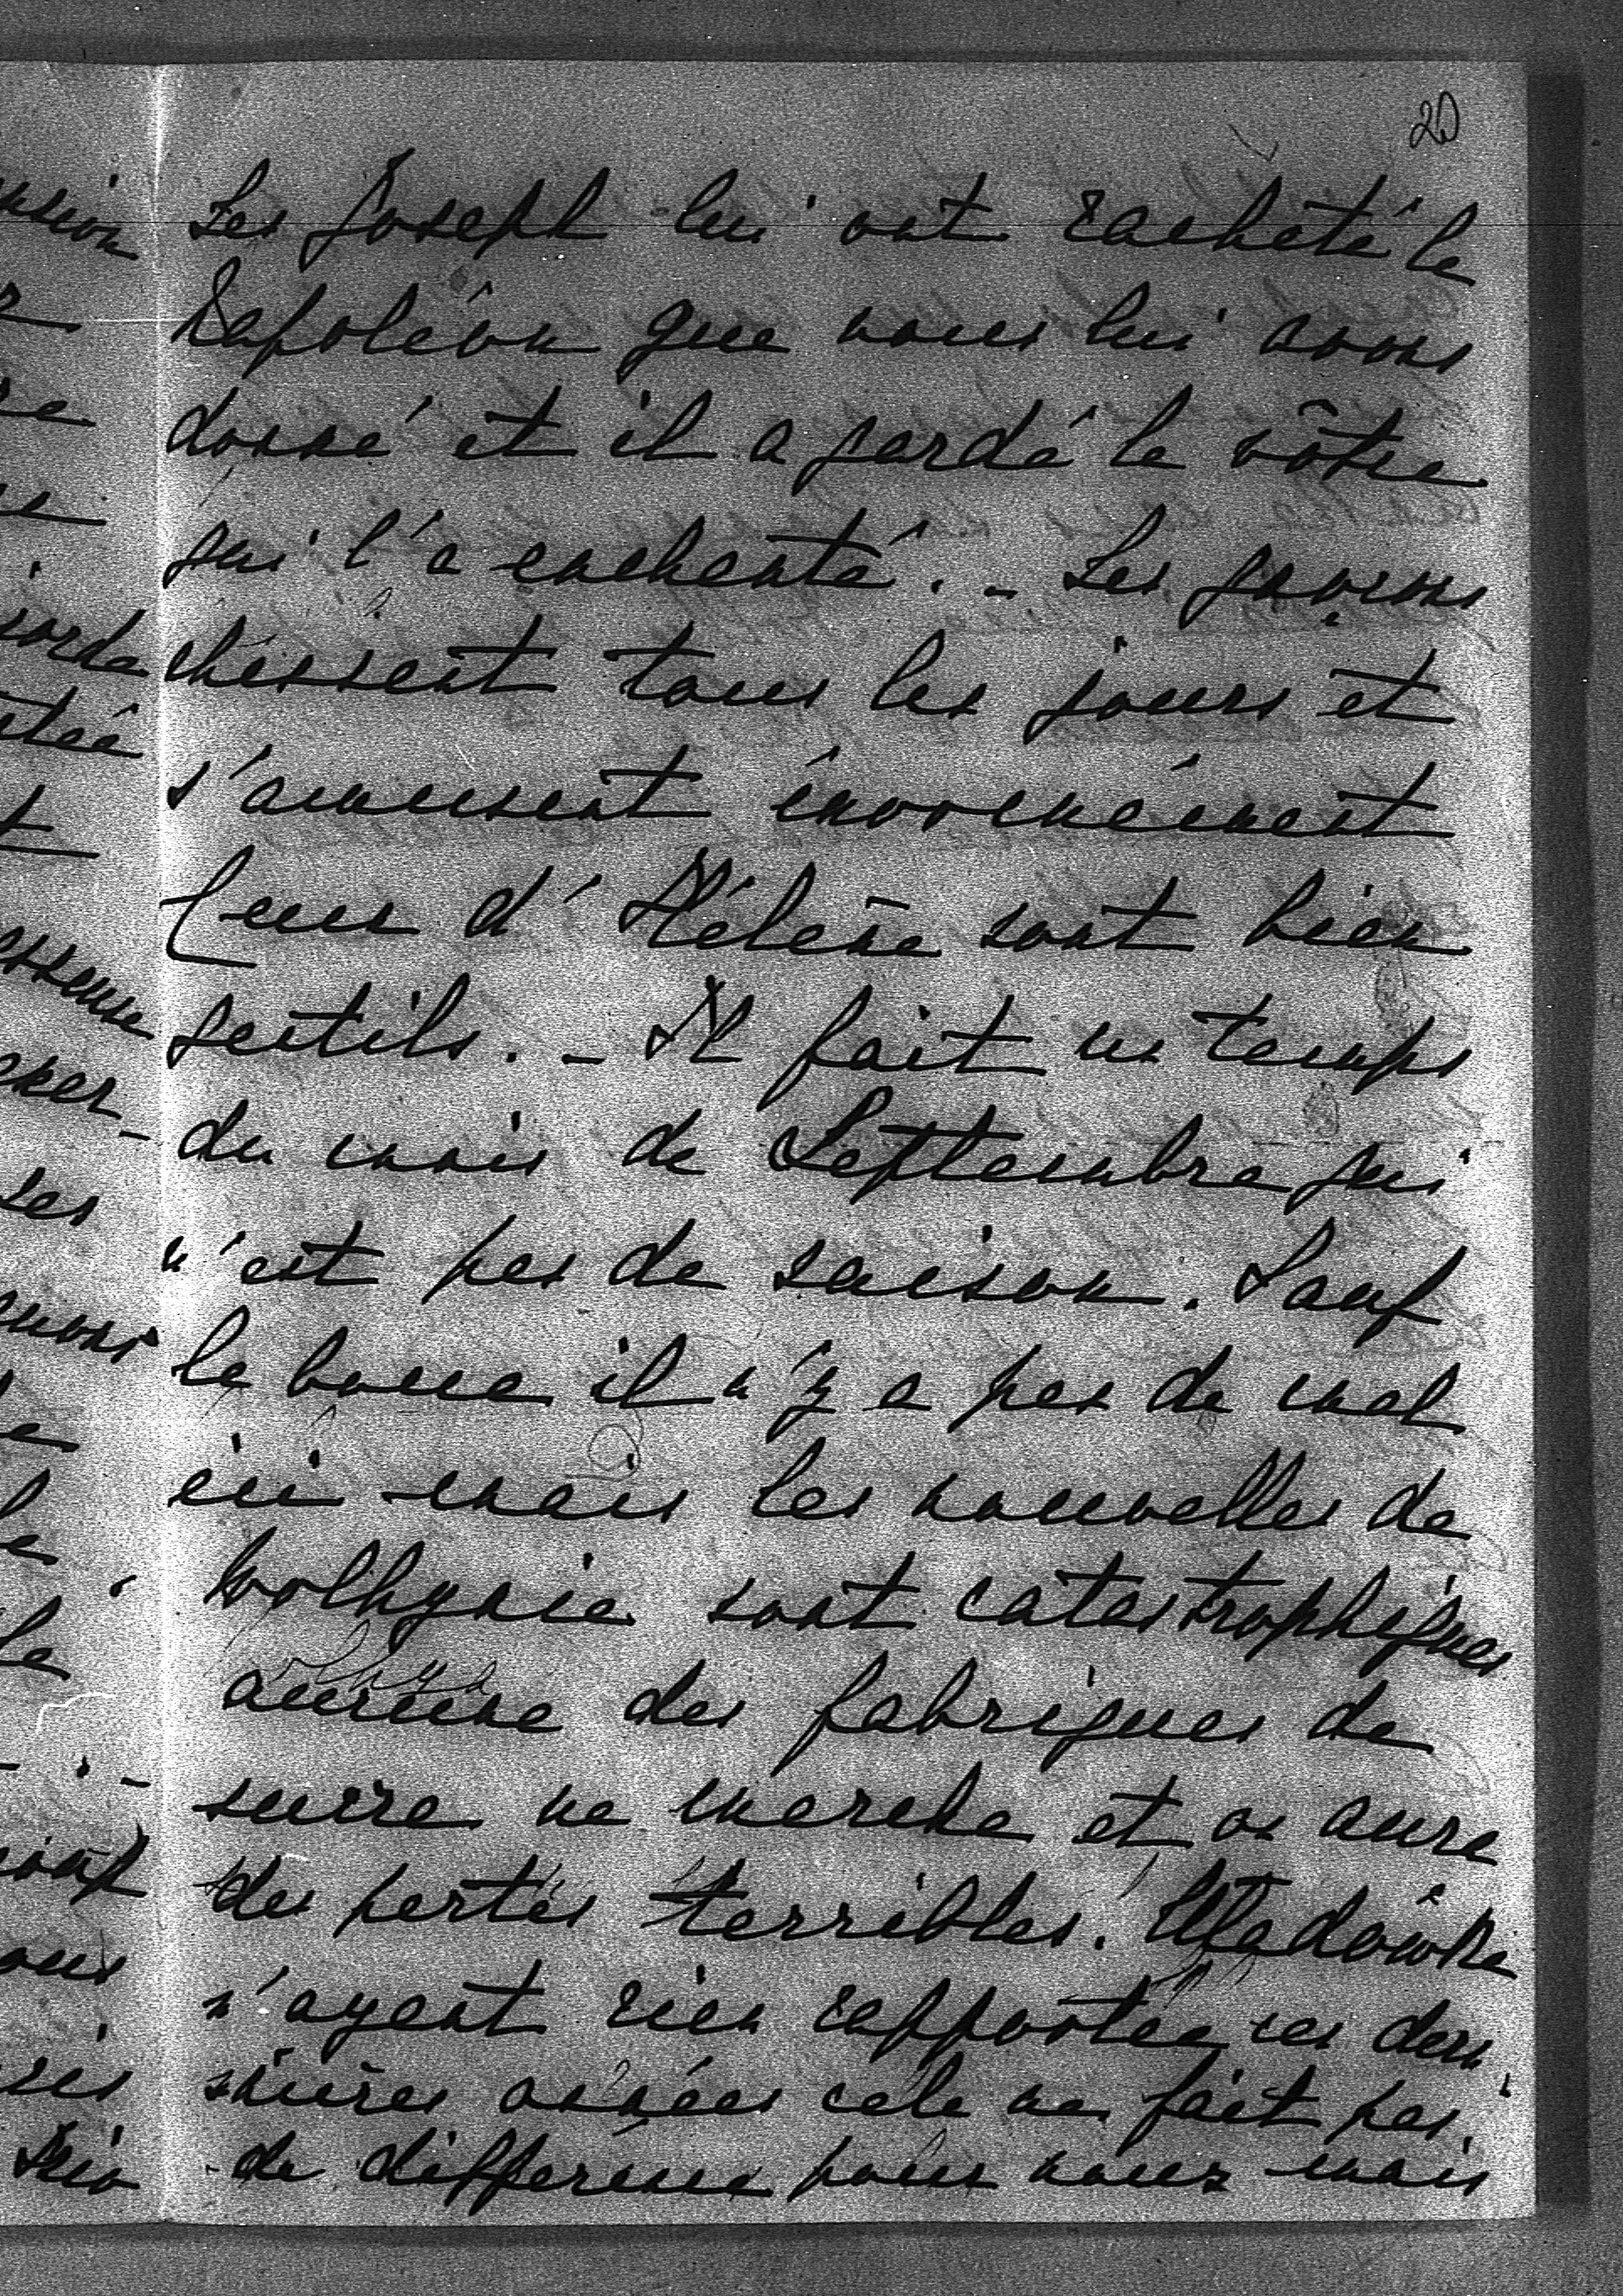 20
Les Joseph lui ont racheté le
Napoléon que nous lui avons
donné et il a gardé le vôtre
qui l'a enchanté. - Les garçons
chassent tous les jours et
s'amusent énormément
Ceux d'Hélène sont bien
gentils. - Il fait un temps
du mois de Septembre qui
n'est pas de saison. Sauf
la boue il n'y a pas de mal
ici mais les nouvelles de
Wolhynie sont catastrophiques
aucune des fabriques de
sucre ne marche et on aura
des pertes terribles.
n'ayant rien rapporté ces der-
nières années cela ne fait pas
de différence pour nous mais